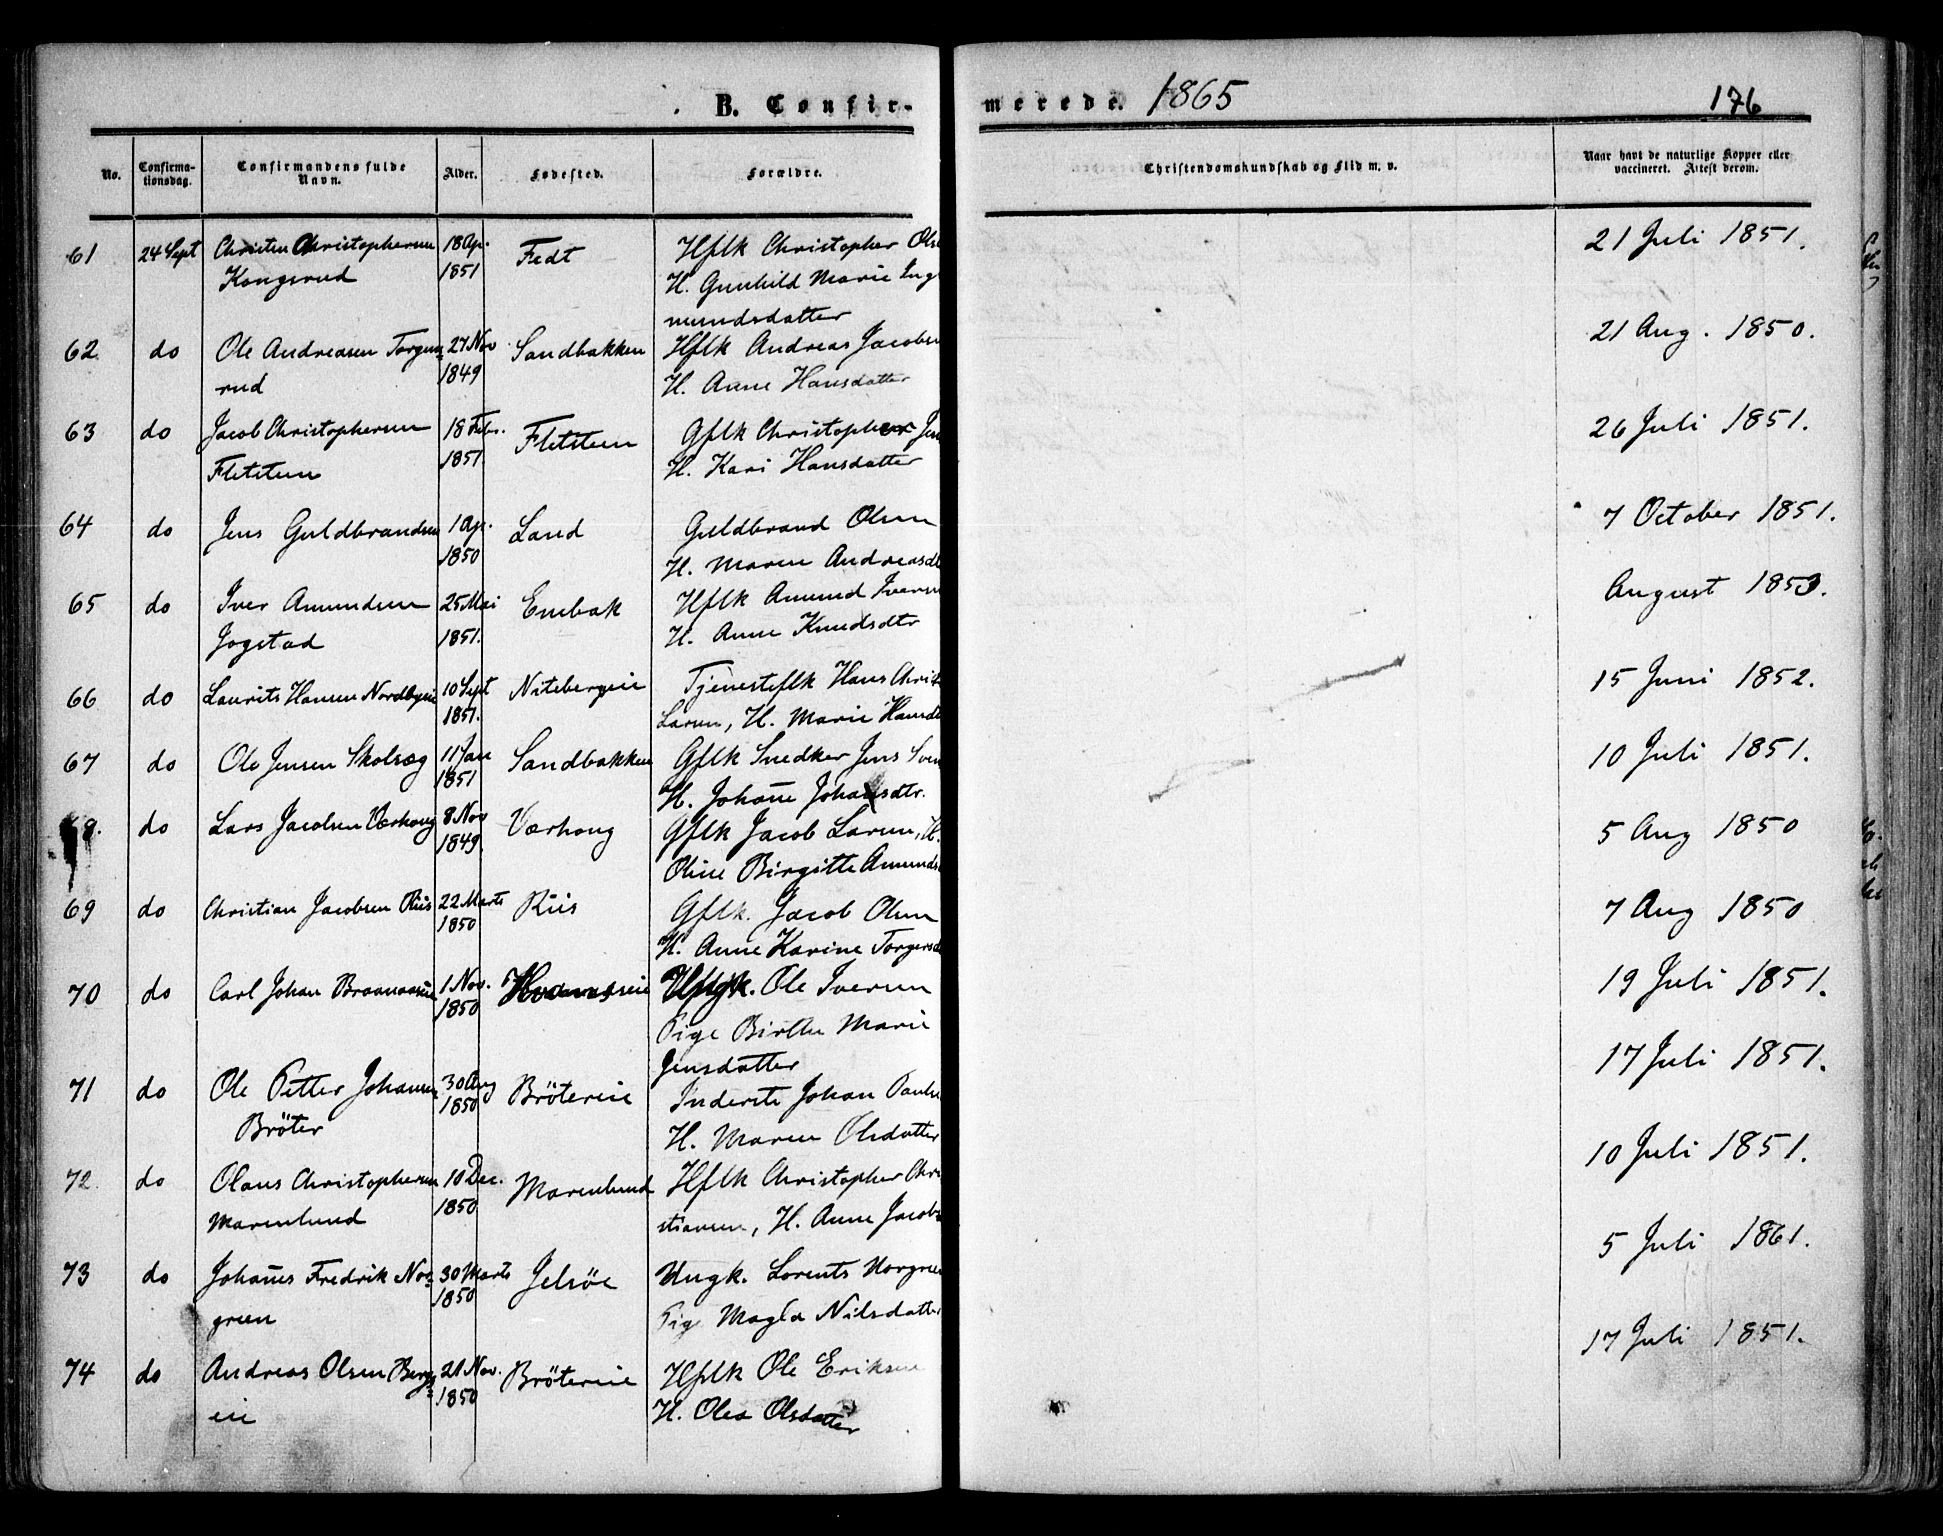 B. Confir-
merede. 1865
176
No.
Confirma-
tionsdag.
Confirmandens fulde
Navn.
Alder.
Fødested.
Forældre.
Christendomskundskab og Flid m. v.
Naar havt de naturlige Kopper eller
vaccineret. Attest derom.
61 24 Sept Christen Christophersen 18 Ap. Fedt Hflk Christopher Ols 21 Juli 1851.
Kongsrud 1851 H. Gunhild Marie Ing
mundsdatter
62 do Ole Andreasen Torgers= 27 Nov Sandbakken Hflk Andreas Jacobsen 21 Aug. 1850.
rud 1849 H. Anne Hansdatter
63 do Jacob Christophersen 18 Febr. Fletsteen Gflk Christopher Jens 26 Juli 1851.
Fletsteen 1851. H. Kari Hansdatter
64 do Jens Guldbrandsen 1 Ap. Land Guldbrand Olsen 7 October 1851.
1850 H. Maren Andreasd
65 do Iver Amundsen 25 Mai Enebak Hflk Amund Iversen August 1853.
Jogstad 1851. H. Anne Knudsdtr
66 do Laurits Hansen Nordbyeie 10 Sept Nitebergeie Tjenesteflk Hans Christ 15 Juni 1852.
1851. Larsen, H. Marie Hansd
67 do Ole Jensen Skolsæg 11 Jan Sandbakken Gflk Snedker Jens Sven 10 Juli 1851.
1851 H. Johañe Johansdtr.
68. do Lars Jacobsen Værhoug 8 Nov Værhoug Gflk Jacob Larsen, H. 5 Aug 1850
1849. Oline Birgitte Amunds
69 do Christian Jacobsen Riis 22 Marts Riis Gflk. Jacob Olsen 7 Aug 1850
1850 H. Anne Karine Torgersd
70 do Carl Johan 1 Nov. Ungk. Ole Iversen 19 Juli 1851.
1850 Pige Birthe Marie
Jensdatter
71 do Ole Petter Johansen 30 Aug Brötereie Inderste Johan Pauls 17 Juli 1851.
Bröter 1850 H. Maren Olsdatter
72 do Olaus Christophersen 10 Dec. Marenlund Hflk Christopher Chri 10 Juli 1851.
Marenlund 1850 stiansen, H. Anne Jacobs
73 do Johañes Fredrik Nor= 30 Marts Jelsöe Ungk. Lorents Norgreen 5 Juli 1861.
green 1850 Pige Magla Nilsdatter
74 do Andreas Olsen Berg= 21 Nov. Brötereie Hflk Ole Eriksen 17 Juli 1851.
eie 1850 H. Olea Olsdatter